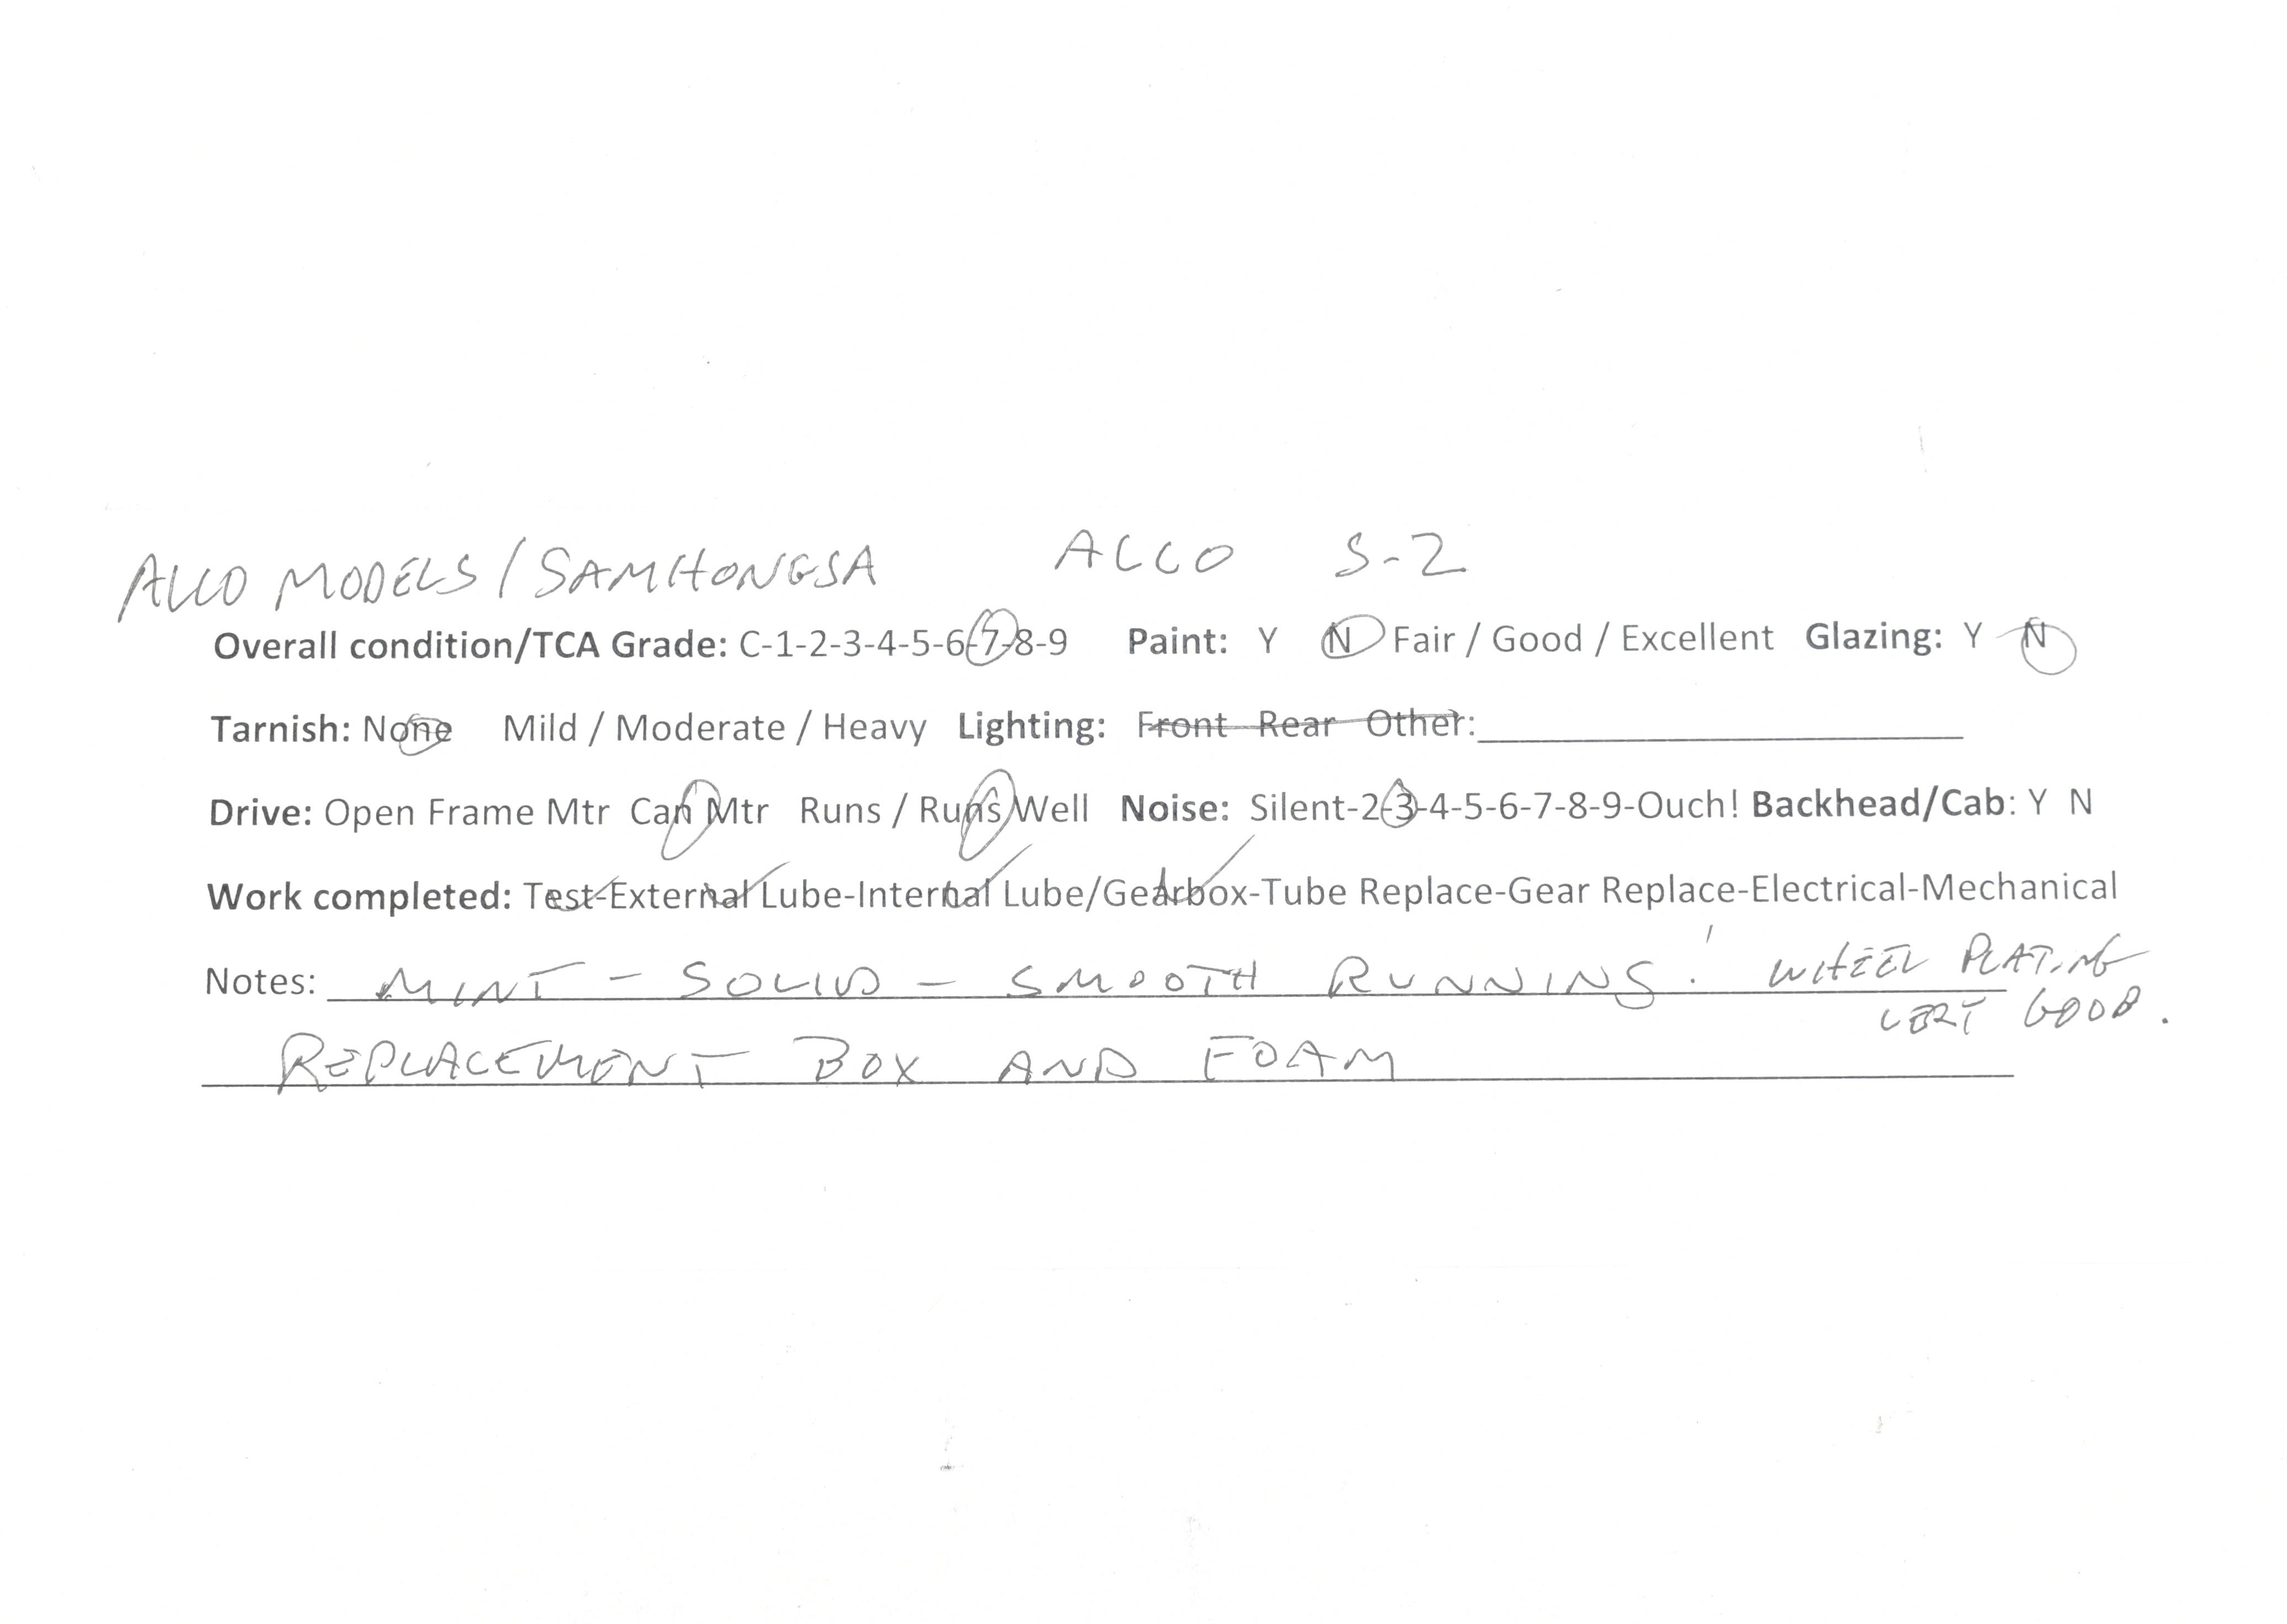 ALCO MODELS / SAMHONGSA ALCO S-2
Overall condition/TCA Grade: C-1-2-3-4-5-6-7-8-9 Paint: Y N Fair / Good / Excellent Glazing: Y N
Tarnish: None Mild / Moderate / Heavy Lighting: Front Rear Other:
Drive: Open Frame Mtr Can Mtr Runs / Runs Well Noise: Silent-2-3-4-5-6-7-8-9-Ouch! Backhead/Cab: Y N
Work completed: Test-External Lube-Internal Lube/Gearbox-Tube Replace-Gear Replace-Electrical-Mechanical
Notes: MINT - SOLID - SMOOTH RUNNING! WHEEL PLATING
VERY GOOD.
REPLACEMENT BOX AND FOAM